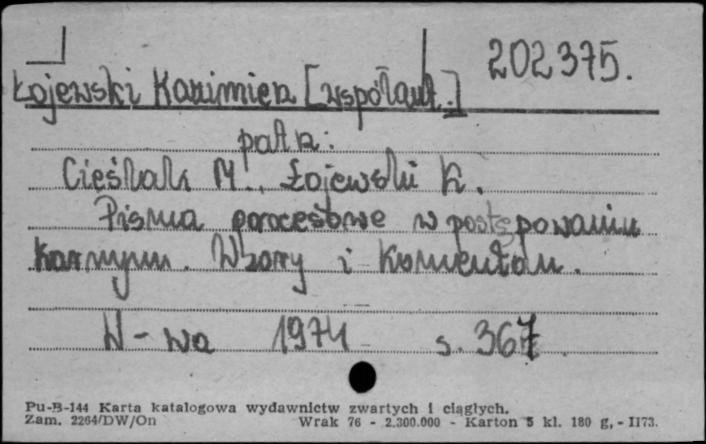 202375.
Łojewski Kazimierz [współaut.]
patrz:
Cieślak M., Łojewski K.
Pisma procesowe w postępowaniu
karnym. Wzory i komentarz.
W-wa 1974 s. 367.
Pu-B-144 Karta katalogowa wydawnictw zwartych i ciągłych.
Zam. 2264/DW/On Wrak 76 - 2.300.000 - Karton 5 kl. 180 g, - II73.